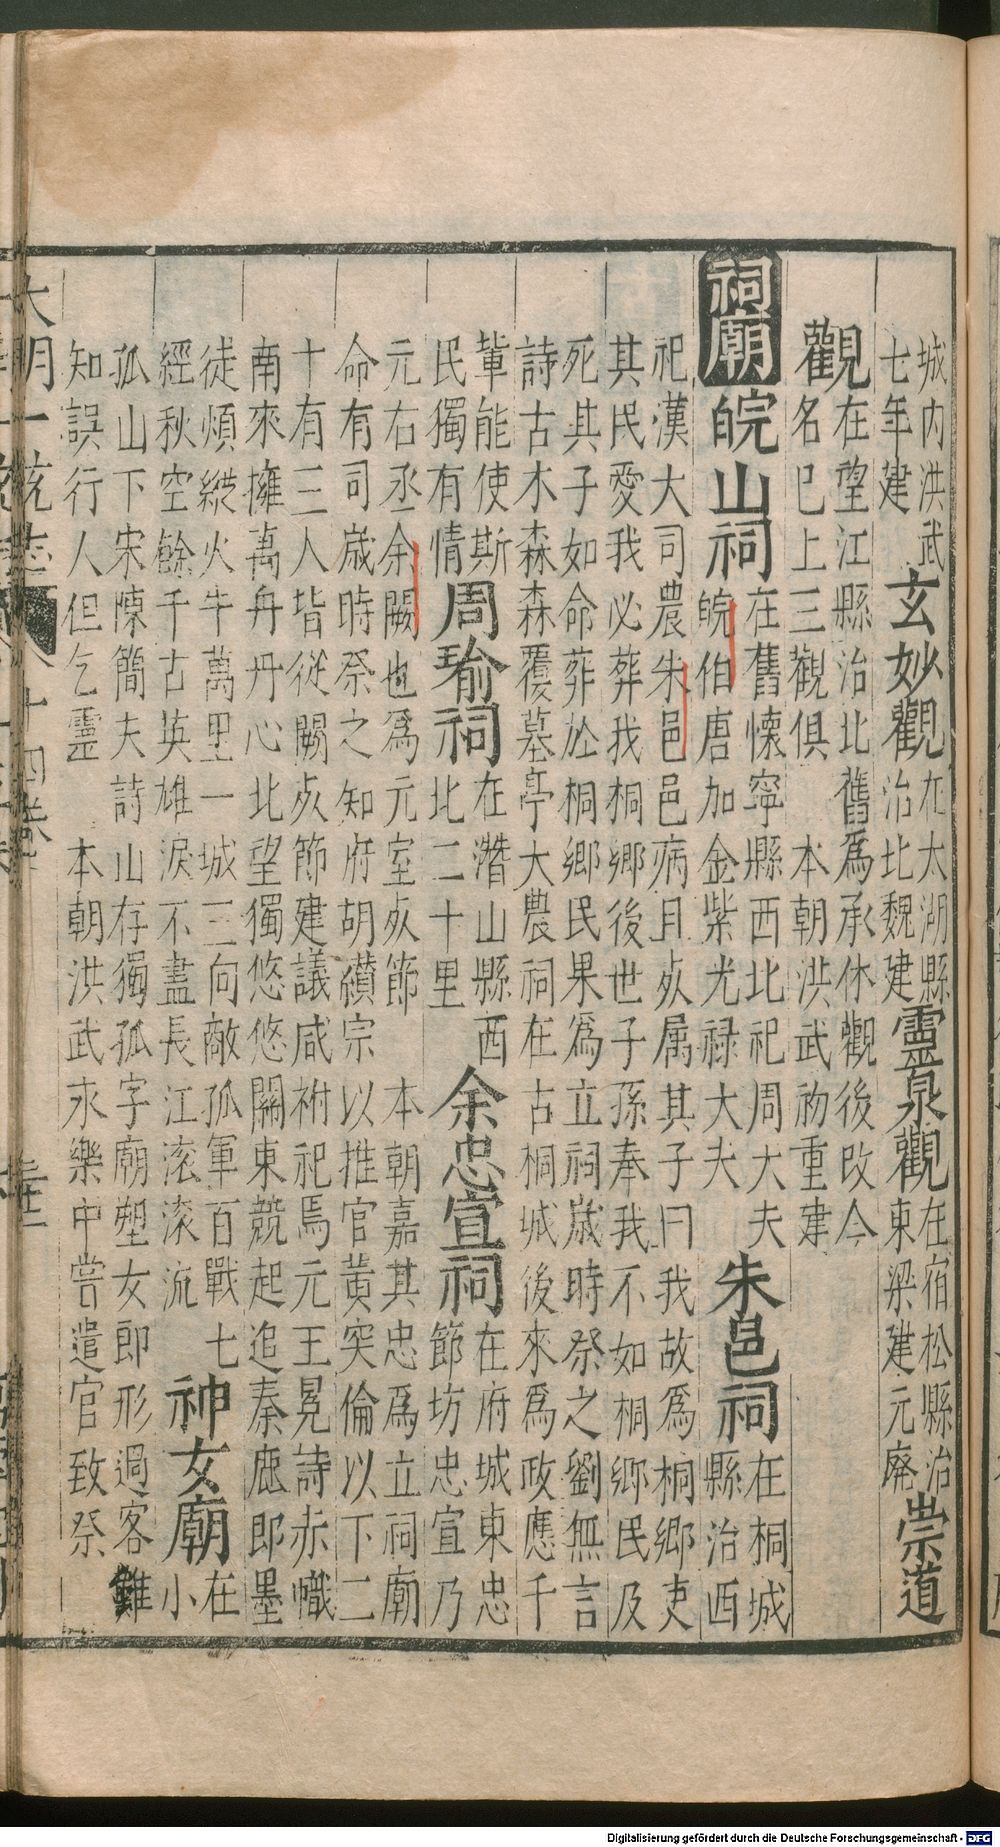 城内洪武七年建玄妙觀在太湖縣治北魏建靈泉觀在宿松縣治東梁建元廢崇道
觀在望江縣治北舊爲承休觀後改今名巳上三觀俱 本朝洪武初重建
祠廟皖山祠在舊懷寧縣西北祀周大夫皖伯唐加金紫光禄大夫朱邑祠在桐城縣治西
祀漢大司農朱邑邑病且歿属其子曰我故爲桐鄉吏
其民愛我必葬我桐鄉後世子孫奉我不如桐鄉民及
死其子如命葬於桐鄉民果爲立祠歲時祭之劉無言
詩古木森森覆墓亭大農祠在古桐城後來爲政應千
輩能使斯民獨有情周瑜祠在潛山縣西北二十里余忠宣祠在府城東忠節坊忠宣乃
元右丞余闕也爲元室歿節 本朝嘉其忠爲立祠廟
命有司歲時祭之知府胡纘宗以推官黃突倫以下二
十有三人皆從闕歿節建議咸祔祀焉元王冕詩赤幟
南來擁萬舟丹心北望獨悠悠關東競起追秦鹿即墨
徒煩縱火牛萬里一城三向敵孤軍百戰七經秋空餘千古英雄淚不盡長江滚滚流神女廟在小
孤山下宋陳簡夫詩山存獨孤字廟塑女郎形過客雖
知誤行人但乞靈 本朝洪武永樂中嘗遣官致祭
大明一統志
Digitalisierung gefördert durch die Deutsche Forschungsgemeinschaft - DFG